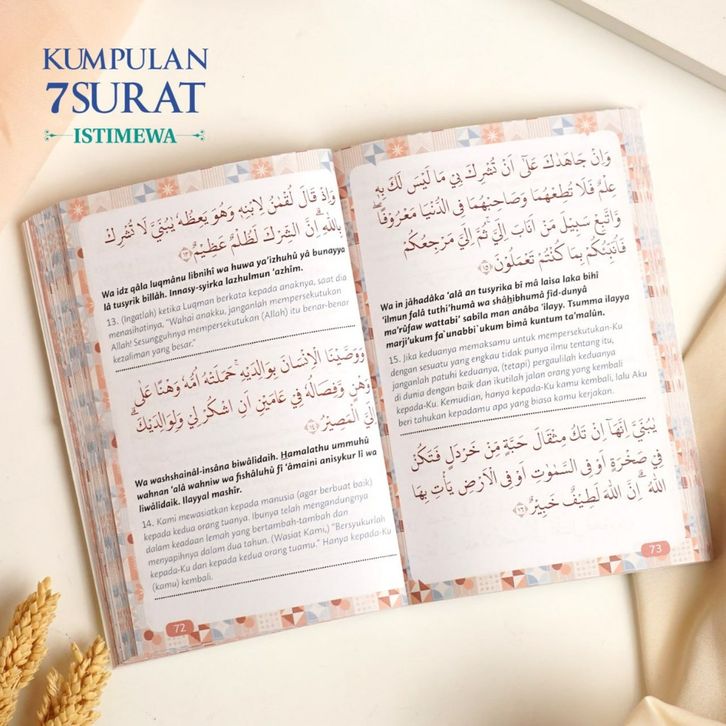 KUMPULAN
7SURAT
ISTIMEWA
وَاِذْ قَالَ لُقْمٰنُ لِابْنِهٖ وَهُوَ يَعِظُهٗ يٰبُنَيَّ لَا تُشْرِكْ
بِاللّٰهِ ۗاِنَّ الشِّرْكَ لَظُلْمٌ عَظِيْمٌ ١٣
Wa idz qâla luqmânu libnihî wa huwa ya‘izhuhû yâ bunayya
lâ tusyrik billâh. Innasy-syirka lazhulmun ‘azhîm.
13. (Ingatlah) ketika Luqman berkata kepada anaknya, saat dia
menasihatinya, “Wahai anakku, janganlah mempersekutukan
Allah! Sesungguhnya mempersekutukan (Allah) itu benar-benar
kezaliman yang besar.”
وَوَصَّيْنَا الْاِنْسَانَ بِوَالِدَيْهِۚ حَمَلَتْهُ اُمُّهٗ وَهْنًا عَلٰى
وَهْنٍ وَّفِصَالُهٗ فِيْ عَامَيْنِ اَنِ اشْكُرْ لِيْ وَلِوَالِدَيْكَۗ
اِلَيَّ الْمَصِيْرُ ١٤
Wa washshainâl-insâna biwâlidaih. Hamalathu ummuhû
wahnan ‘alâ wahniw wa fishâluhû fî ‘âmaini anisykur lî wa
liwâlidaik. Ilayyal mashîr.
14. Kami mewasiatkan kepada manusia (agar berbuat baik)
kepada kedua orang tuanya. Ibunya telah mengandungnya
dalam keadaan lemah yang bertambah-tambah dan
menyapihnya dalam dua tahun. (Wasiat Kami,) “Bersyukurlah
kepada-Ku dan kepada kedua orang tuamu.” Hanya kepada-Ku
(kamu) kembali.
72
وَاِنْ جَاهَدٰكَ عَلٰٓى اَنْ تُشْرِكَ بِيْ مَا لَيْسَ لَكَ بِهٖ
عِلْمٌ فَلَا تُطِعْهُمَا وَصَاحِبْهُمَا فِى الدُّنْيَا مَعْرُوْفًا ۖ
وَّاتَّبِعْ سَبِيْلَ مَنْ اَنَابَ اِلَيَّۚ ثُمَّ اِلَيَّ مَرْجِعُكُمْ
فَاُنَبِّئُكُمْ بِمَا كُنْتُمْ تَعْمَلُوْنَ ١٥
Wa in jâhadâka ‘alâ an tusyrika bî mâ laisa laka bihî
‘ilmun falâ tuthi‘humâ wa shâhibhumâ fid-dunyâ
ma‘rûfaw wattabi‘ sabîla man anâba ‘ilayy. Tsumma ilayya
marji‘ukum fa`unabbi`ukum bimâ kuntum ta‘malûn.
15. Jika keduanya memaksamu untuk mempersekutukan-Ku
dengan sesuatu yang engkau tidak punya ilmu tentang itu,
janganlah patuhi keduanya, (tetapi) pergaulilah keduanya
di dunia dengan baik dan ikutilah jalan orang yang kembali
kepada-Ku. Kemudian, hanya kepada-Ku kamu kembali, lalu Aku
beri tahukan kepadamu apa yang biasa kamu kerjakan.
يٰبُنَيَّ اِنَّهَآ اِنْ تَكُ مِثْقَالَ حَبَّةٍ مِّنْ خَرْدَلٍ فَتَكُنْ
فِيْ صَخْرَةٍ اَوْ فِى السَّمٰوٰتِ اَوْ فِى الْاَرْضِ يَأْتِ بِهَا
اللّٰهُ ۗاِنَّ اللّٰهَ لَطِيْفٌ خَبِيْرٌ ١٦
73